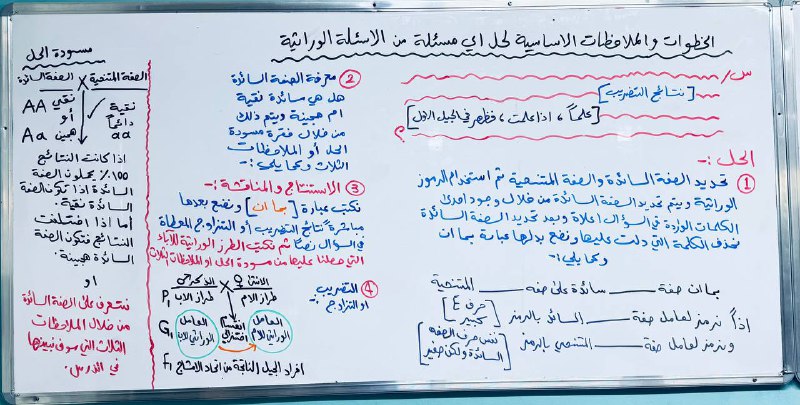 الخطوات والملاحظات الاساسية لحل اي مسئلة من الاسئلة الوراثية
س/
[نتائج التضريب]
[علماً، اذا علمت، فظهر في الجيل الاول]
؟
الحل :-
① تحديد الصفة السائدة والصفة المتنحية ثم استخدام الرموز
الوراثية ويتم تحديد الصفة السائدة من خلال وجود احدى
الكلمات الواردة في السؤال اعلاه وبعد تحديد الصفة السائدة
نحذف الكلمة التي دلت عليها ونضع بدلها عبارة بما ان
وكما يلي :-
بما ان صفة ــــ سائدة على صفة ــــ المتنحية
اذاً نرمز لعامل صفة ــــ السائد بالرمز [حرف E كبير]
ونرمز لعامل صفة ــــ المتنحي بالرمز [نفس حرف الصفه السائدة ولكن صغير]
② معرفة الصفة السائدة
هل هي سائدة نقية
ام هجينة ويتم ذلك
من خلال فقرة مسودة
الحل أو الملاحظات
الثلاث وكما يلي :-
③ الاستنتاج والمناقشة :-
نكتب عبارة [بما ان] ونضع بعدها
مباشرة نتائج التضريب أو التزاوج المعطاة
في السؤال نصاً ثم نكتب الطرز الوراثية للآباء
التي حصلنا عليها من مسودة الحل او الملاحظات الثلاث
④ التضريب
او التزاوج :-
الانثى ♀ الذكر ♂
P₁ طراز الاب × طراز الام
G₁ العامل الوراثي للاب انقسام اختزالي العامل الوراثي للام
F₁ افراد الجيل الناتجة من اتحاد الامشاج
مسودة الحل
الصفة السائدة × الصفة المتنحية
AA نقي نقية
أو دائماً
Aa هجين aa
اذا كانت النتائج
١٠٠٪ يحملون الصفة
السائدة اذاً تكون الصفة
السائدة نقية.
أما اذا اختلفت
النتائج فتكون الصفة
السائدة هجينة.
او
نتعرف على الصفة السائدة
من خلال الملاحظات
الثلاث التي سوف نبينها
في الدرس.